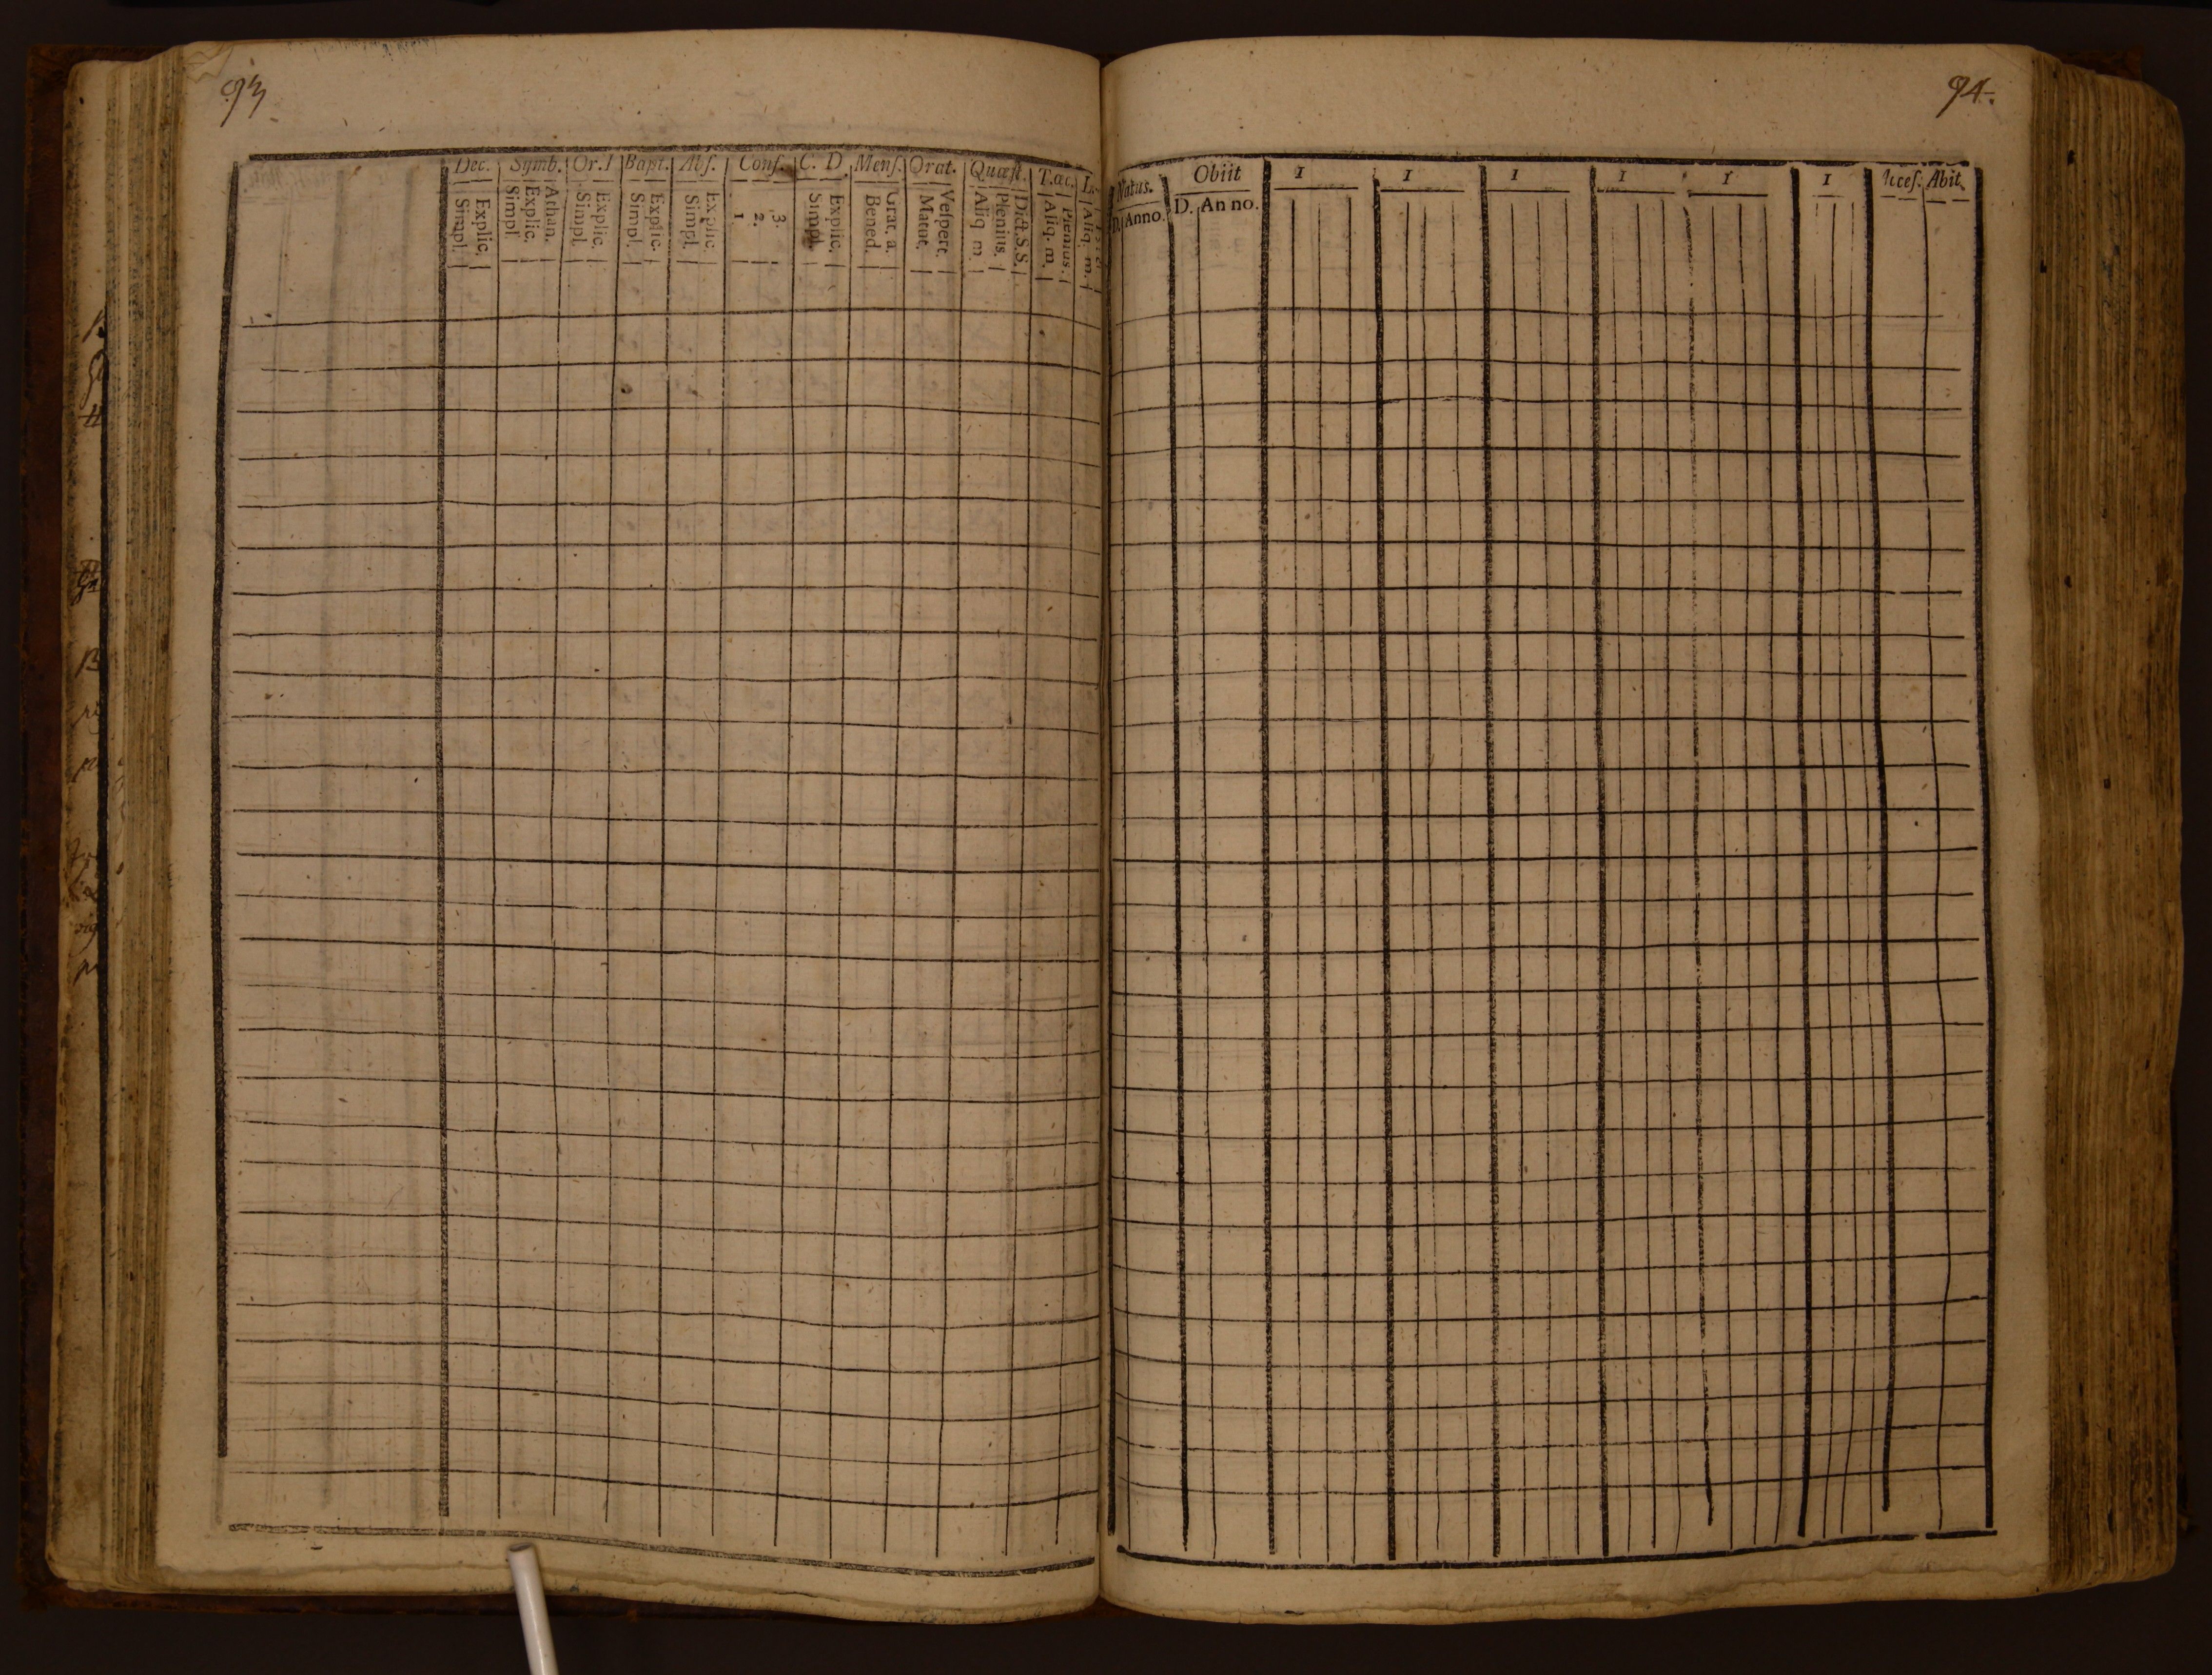 93
Dec. Symb. Or.I Bapt. Abſ. Conf. C. D. Menſ. Orat. Quæſt. T.œc.
Simpl. Explic.
Simpl. Explic. Athan.
Simpl. Explic.
Simpl. Explic.
Simpl. Explic.
1 2. 3.
Simpl. Explic.
Bened. Grat. a.
Matut. Veſpert.
Aliq m. Plenius. Dict.S.S.
Aliq. m. Plenius.
Aliq. m.
94.
Natus. Obiit I I I I I I Acceſ. Abit
D. Anno. D. An no.